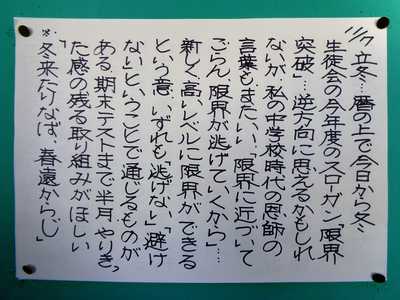 11/7 立冬…暦の上で今日から冬
生徒会の今年度のスローガン「限界
突破」…逆方向に思えるかもしれ
ないが、私の中学校時代の恩師の
言葉もまたいい、「限界に近づいて
ごらん、限界が逃げていくから」…
新しく高いレベルに限界ができる
という意、いずれも「逃げない」「避け
ない」ということで通じるものが
ある 期末テストまで半月、やりきっ
た感の残る取り組みがほしい
※「冬来たりなば、春遠からじ」